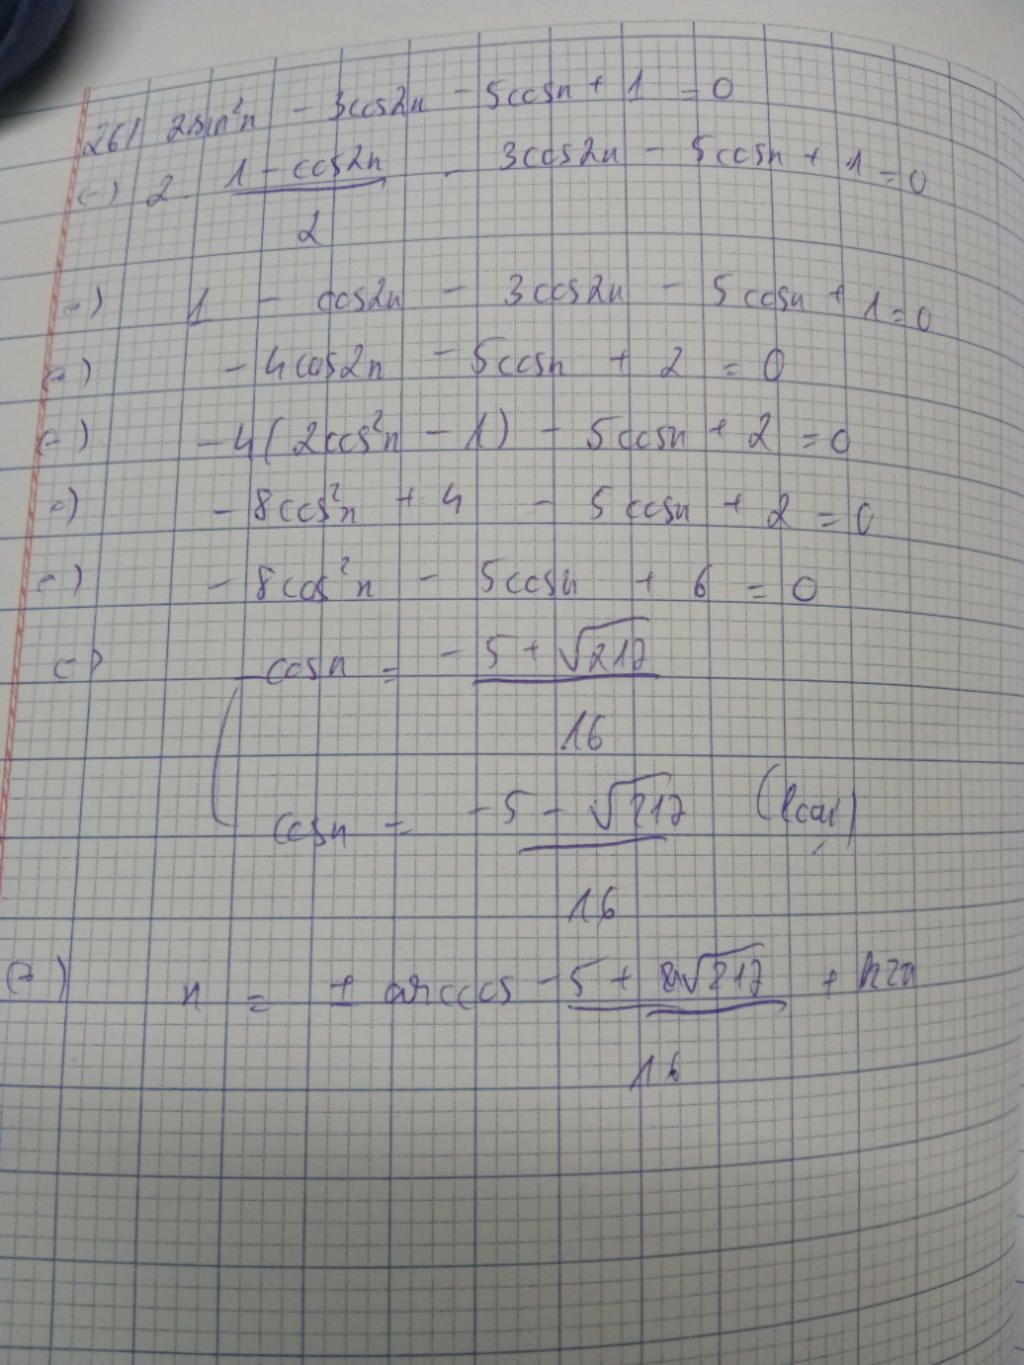 26/ 2sin²x - 3cos2x - 5cosx + 1 = 0
(=) 2. (1 - cos2x)/2 - 3cos2x - 5cosx + 1 = 0
=) 1 - cos2x - 3cos2x - 5cosx + 1 = 0
(=) - 4cos2x - 5cosx + 2 = 0
(=) - 4(2cos²x - 1) - 5cosx + 2 = 0
=) - 8cos²x + 4 - 5cosx + 2 = 0
=) - 8cos²x - 5cosx + 6 = 0
(=) cosx = (-5 + √217)/16
cosx = (-5 - √217)/16 (loại)
(=) x = ± arccos (-5 + √217)/16 + k2π